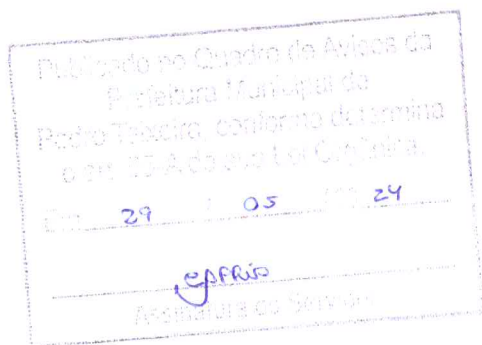 Publicado no Quadro de Avisos da
Prefeitura Municipal de
Pedro Teixeira, conforme determina
o art. de sua Lei Orgânica.
Em 29 / 05 / 24
Assinatura do Servidor